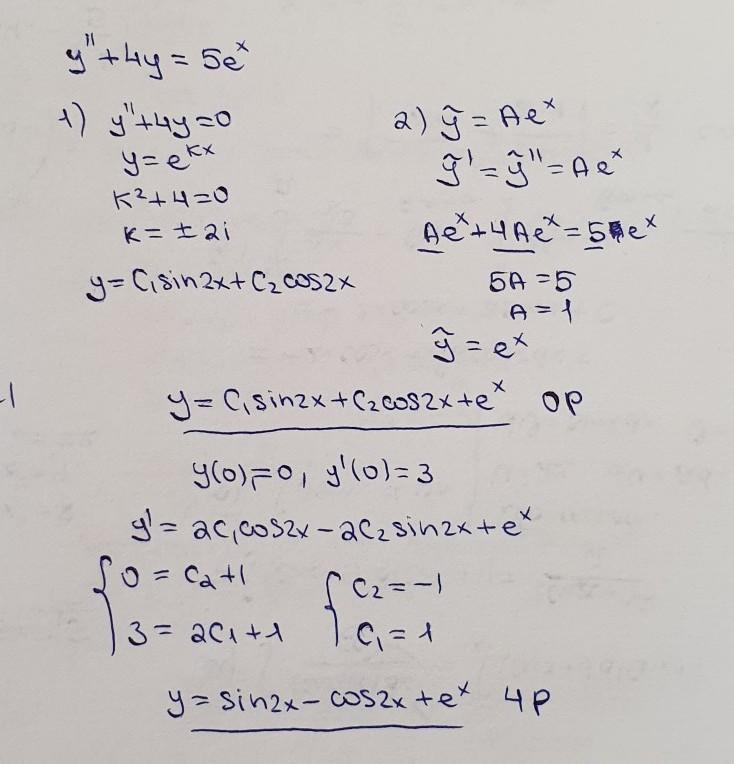 y''+4y = 5e^x
1) y''+4y=0
y=e^{kx}
k²+4=0
k=±2i
y=C₁sin2x+C₂cos2x
2) ỹ = Ae^x
ỹ'=ỹ''=Ae^x
Ae^x+4Ae^x=5e^x
5A=5
A=1
ỹ=e^x
-1
y=C₁sin2x+C₂cos2x+e^x ОР
y(0)=0, y'(0)=3
y'=2C₁cos2x-2C₂sin2x+e^x
{0=C₂+1 {C₂=-1
3=2C1+1 C₁=1
y=sin2x-cos2x+e^x ЧР